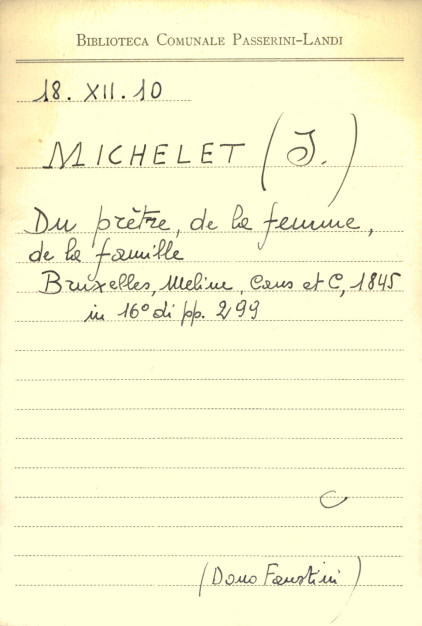 BIBLIOTECA COMUNALE PASSERINI-LANDI
18. XII. 10
MICHELET (J.)
Du prêtre, de la femme,
de la famille
Bruxelles, Meline, Cans et C, 1845
in 16° di pp. 299
C
(Dono Faustini)